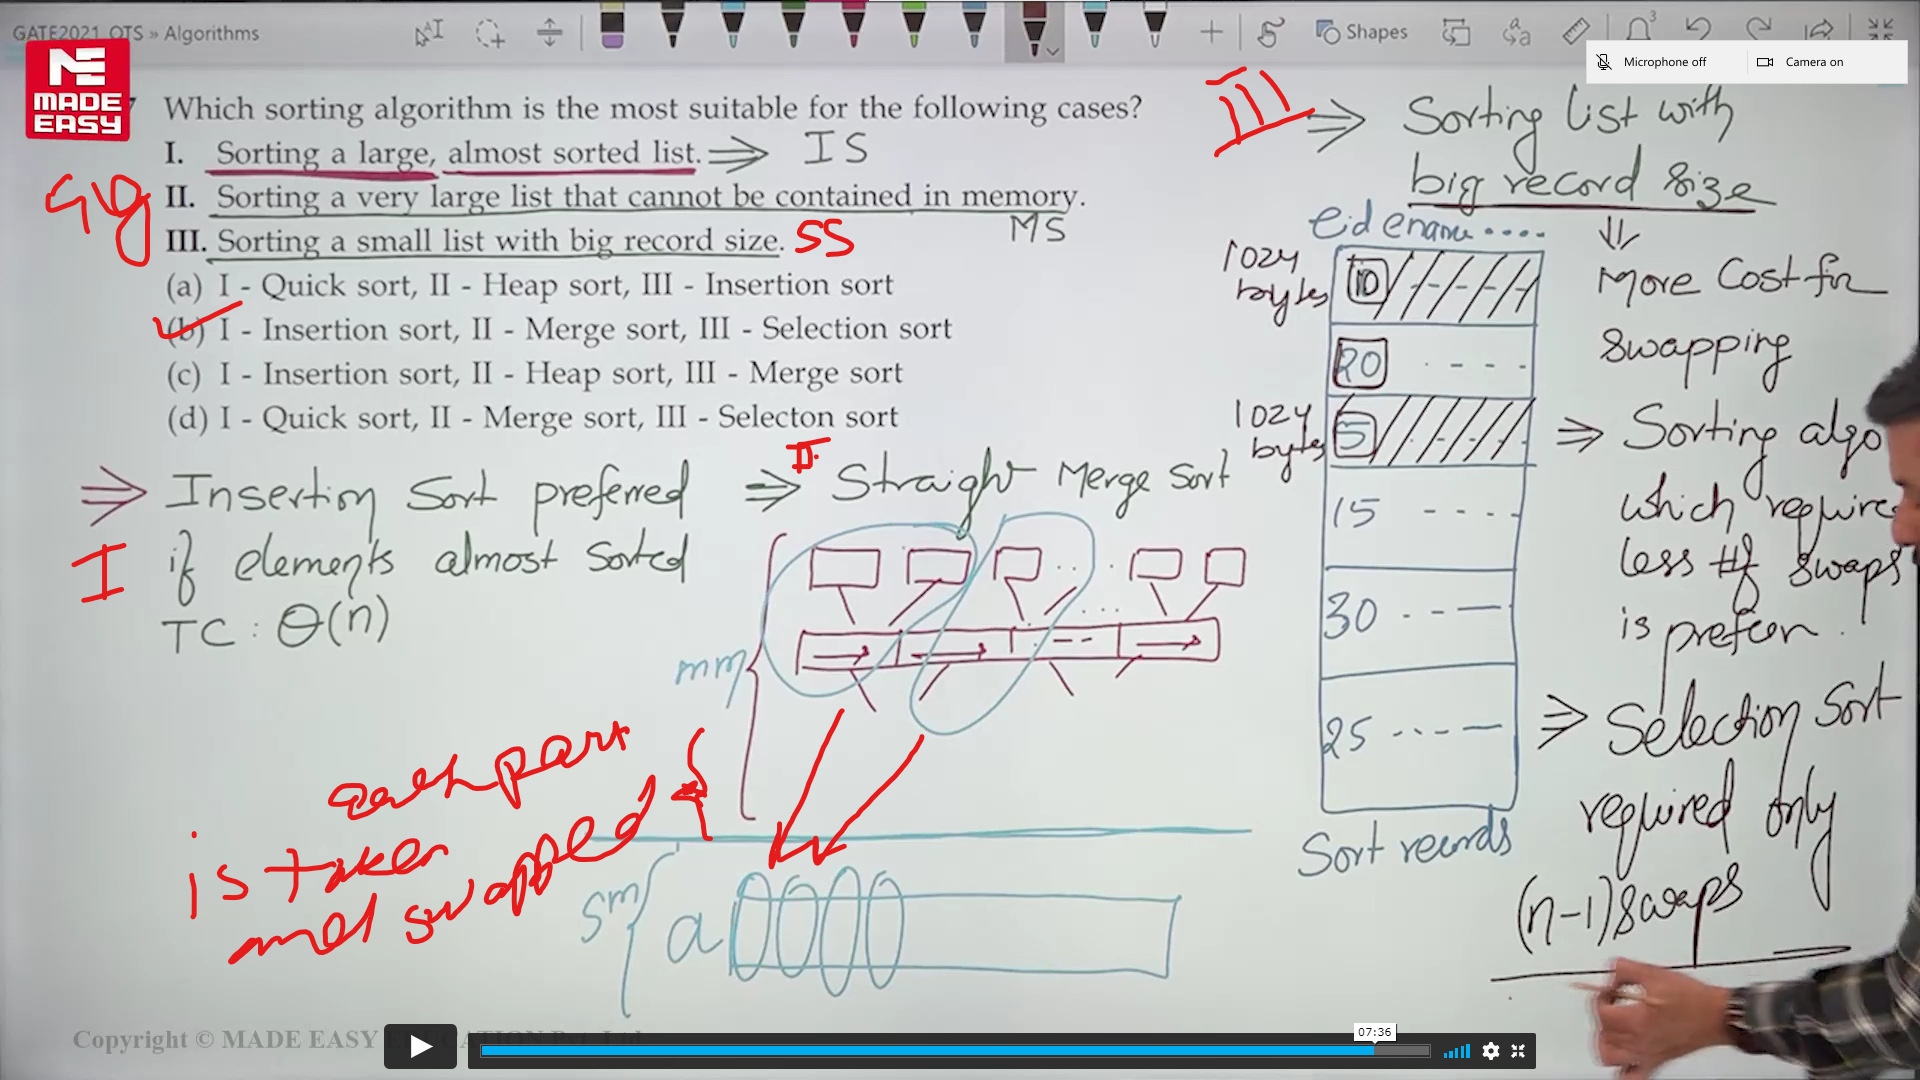 GATE2021_OTS » Algorithms
Shapes
3
Microphone off
Camera on
ME
MADE
EASY
Which sorting algorithm is the most suitable for the following cases?
I. Sorting a large, almost sorted list. ⇒ IS
II. Sorting a very large list that cannot be contained in memory.
MS
III. Sorting a small list with big record size. SS
(a) I - Quick sort, II - Heap sort, III - Insertion sort
(b) I - Insertion sort, II - Merge sort, III - Selection sort
(c) I - Insertion sort, II - Heap sort, III - Merge sort
(d) I - Quick sort, II - Merge sort, III - Selecton sort
⇒ Insertion Sort preferred
I
if elements almost sorted
TC : Θ(n)
II
⇒ Straight Merge Sort
mm
each part
is taken
and swapped
sm
a
III ⇒ Sorting list with
big record size
⇓
More Cost for
swapping
eid ename ....
1024
bytes
10
20
1024
bytes
5
15
30
25
Sort records
⇒ Sorting algo
which require
less # of swaps
is prefer.
⇒ Selection Sort
required only
(n-1) swaps
Copyright © MADE EASY
07:36